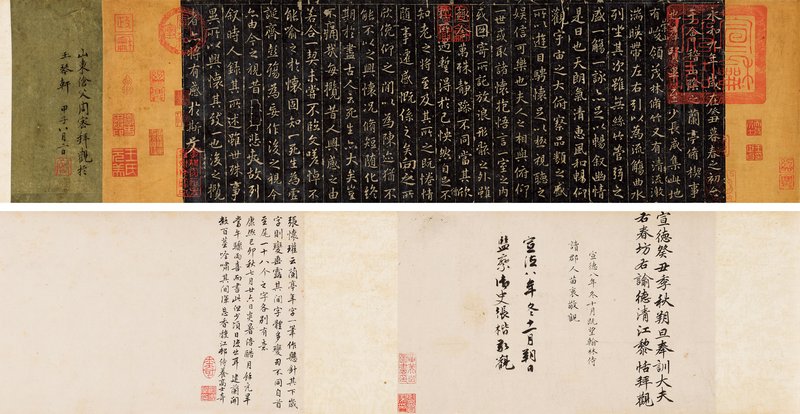 永和九年歲在癸丑暮春之初會
于會稽山陰之蘭亭脩稧事
也群賢畢至少長咸集此地
有峻領茂林脩竹又有清流激
湍映帶左右引以為流觴曲水
列坐其次雖無絲竹管弦之
盛一觴一詠亦足以暢敘幽情
是日也天朗氣清惠風和暢仰
觀宇宙之大俯察品類之盛
所以遊目騁懷足以極視聽之
娛信可樂也夫人之相與俯仰
一世或取諸懷抱悟言一室之內
或因寄所託放浪形骸之外雖
趣舍萬殊靜躁不同當其欣
於所遇蹔得於己怏然自足不
知老之將至及其所之既惓情
隨事遷感慨係之矣向之所
欣俛仰之間以為陳迹猶不
能不以之興懷況脩短隨化終
期於盡古人云死生亦大矣豈
不痛哉每攬昔人興感之由
若合一契未嘗不臨文嗟悼不
能喻之於懷固知一死生為虛
誕齊彭殤為妄作後之視今
亦由今之視昔悲夫故列
敘時人錄其所述雖世殊事
異所以興懷其致一也後之攬
者亦將有感於斯文
山東人周密拜觀於
王黎軒 甲子八月
宣德癸丑季秋朔旦奉訓大夫
右春坊右諭德清江黎恬拜觀
宣德八年冬十月既望翰林侍
讀郡人苗衷敬觀
宣德八年冬十一月朔日
監察御史張楷敬觀
張懷瓘云蘭亭年字一筆作懸針其下歲
字則變垂露其間字體多變不同自首
至尾一十八个之字各別有意
康熙己卯秋七月廿六日炎暑月餘元旱
當午驟雨喜而書此但少頃日復出耳 建蘭開
數百莖冷嘯其間深息香江邨高士奇